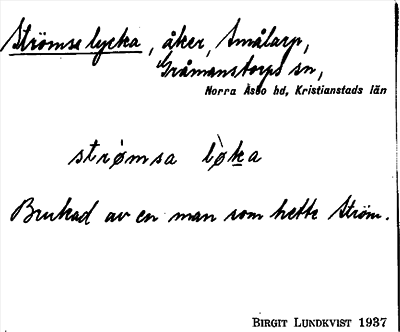 Strömse lycka, åker, Smålarp,
Gråmanstorps sn,
Norra Åsbo hd, Kristianstads län
strømsa løka
Brukad av en man som hette Ström.
BIRGIT LUNDKVIST 1937